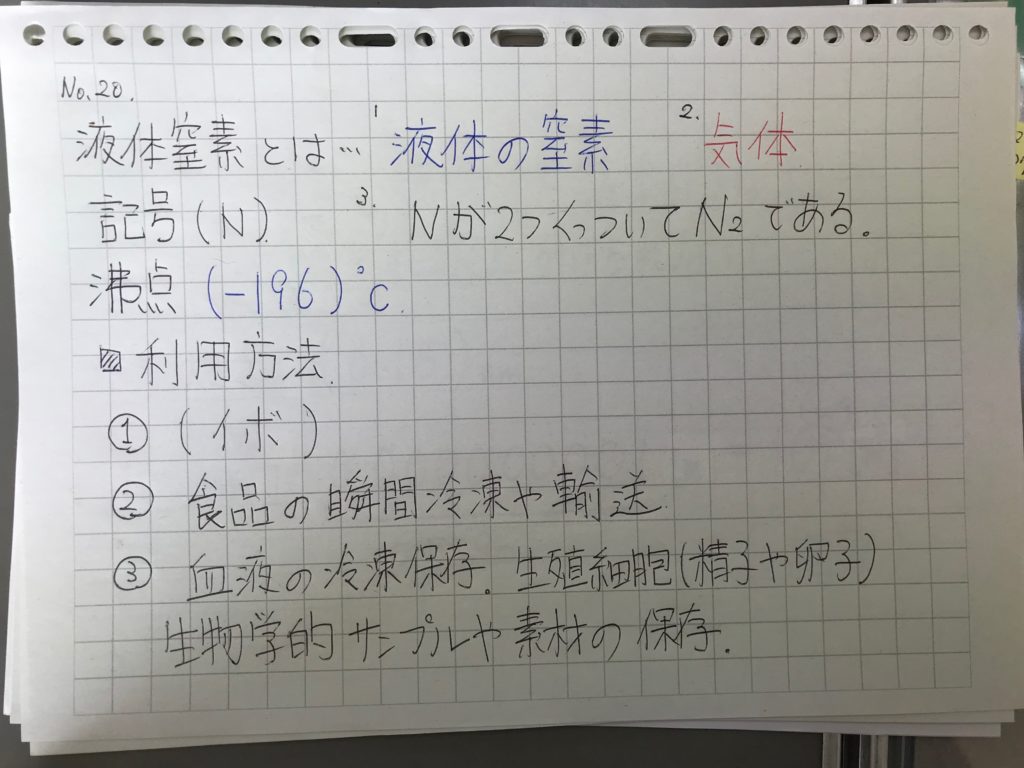 No.20.
液体窒素とは… 1 液体の窒素 2. 気体
記号(N). 3. Nが2つくっついてN2である。
沸点 (-196)℃
▨ 利用方法.
① (イボ)
② 食品の瞬間冷凍や輸送.
③ 血液の冷凍保存. 生殖細胞(精子や卵子)
生物学的サンプルや素材の保存.